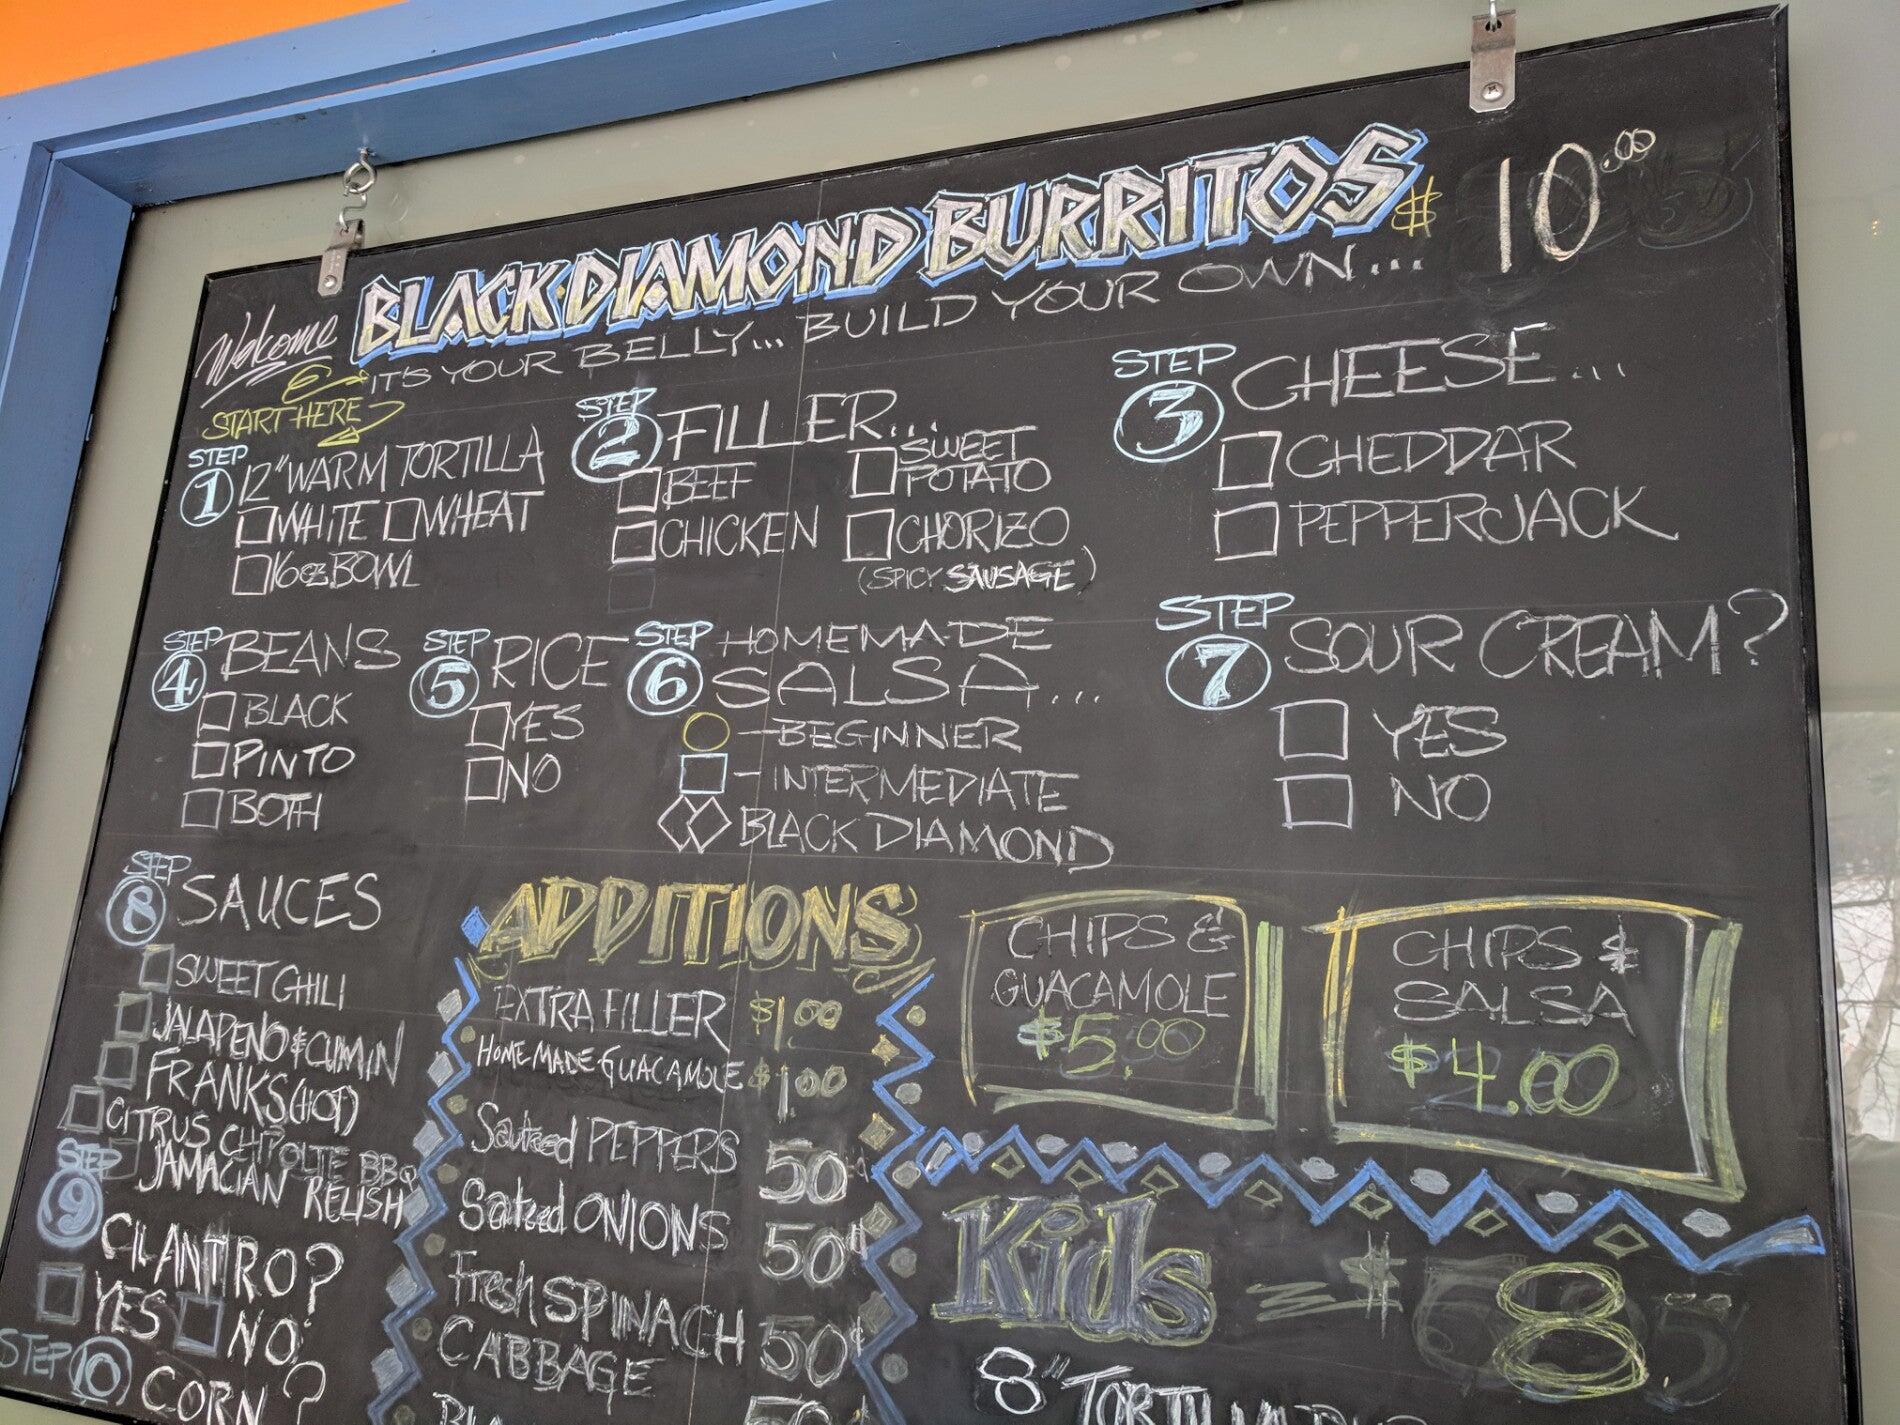 Welcome BLACK DIAMOND BURRITOS $ 10.00
IT'S YOUR BELLY... BUILD YOUR OWN...
START HERE
STEP 1 12" WARM TORTILLA
WHITE WHEAT
16oz BOWL
STEP 2 FILLER...
BEEF SWEET POTATO
CHICKEN CHORIZO
(SPICY SAUSAGE)
STEP 3 CHEESE...
CHEDDAR
PEPPERJACK
STEP 4 BEANS
BLACK
PINTO
BOTH
STEP 5 RICE
YES
NO
STEP 6 HOMEMADE
SALSA...
- BEGINNER
- INTERMEDIATE
BLACK DIAMOND
STEP 7 SOUR CREAM?
YES
NO
STEP 8 SAUCES
SWEET CHILI
JALAPENO & CUMIN
FRANKS (HOT)
CITRUS CHIPOLTE BBQ
JAMACIAN RELISH
STEP 9 CILANTRO?
YES NO
STEP 10 CORN?
ADDITIONS
EXTRA FILLER $1.00
HOMEMADE GUACAMOLE $1.00
Sauteed PEPPERS 50¢
Sauteed ONIONS 50¢
Fresh SPINACH 50¢
CABBAGE
CHIPS &
GUACAMOLE
$5.00
CHIPS &
SALSA
$4.00
Kids = $ 8
8" TORTILLA